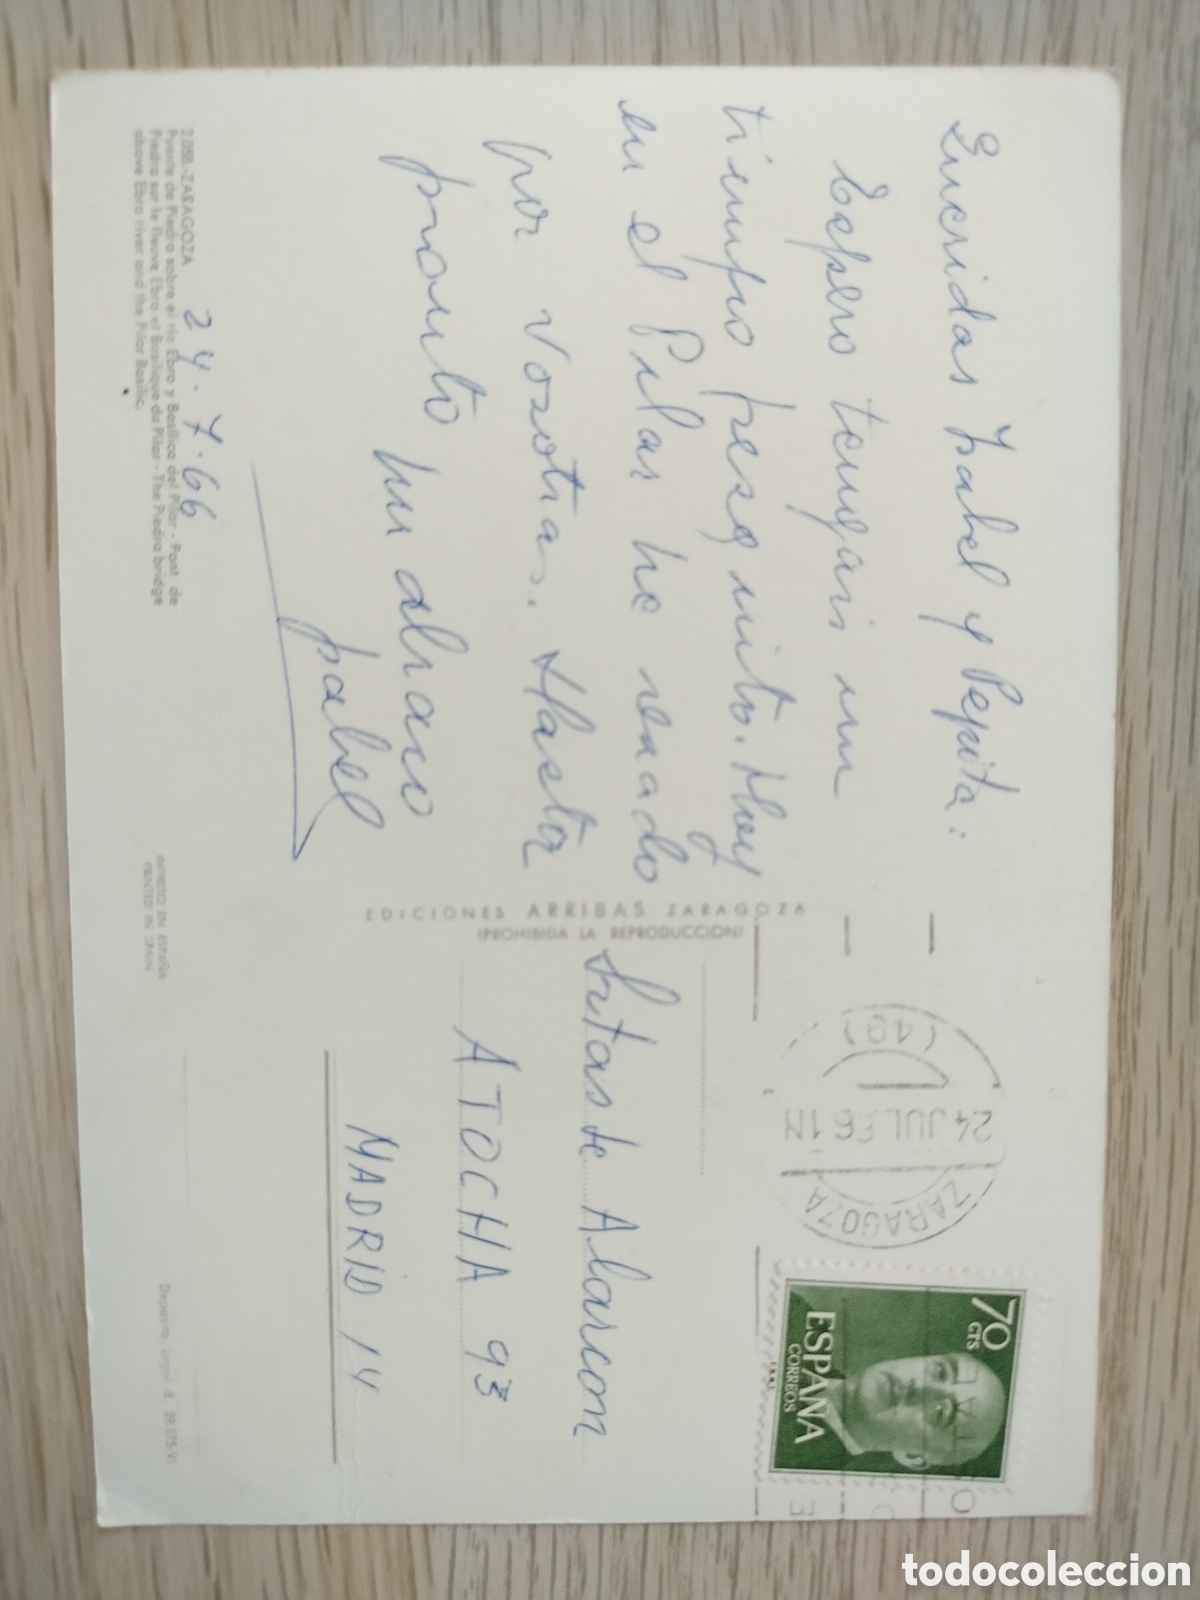 Queridas Isabel y Pepita:
Espero tengais un
tiempo fresquito. Hoy
en el Pilar he rezado
por vosotras. Hasta
pronto un abrazo
Isabel
24-7-66
2.058.-ZARAGOZA
Puente de Piedra sobre el río Ebro y Basílica del Pilar - Pont de
Piedra sur le fleuve Ebro et Basilique du Pilar - The Piedra bridge
above Ebro river and the Pilar Basilic.
EDICIONES ARRIBAS ZARAGOZA
(PROHIBIDA LA REPRODUCCION)
IMPRESO EN ESPAÑA
PRINTED IN SPAIN
Sritas de Alarcon
ATOCHA 93
MADRID 14
ZARAGOZA
24 JUL 66
(49)
70
CTS
ESPAÑA
CORREOS
Depósito Legal B.
todocoleccion